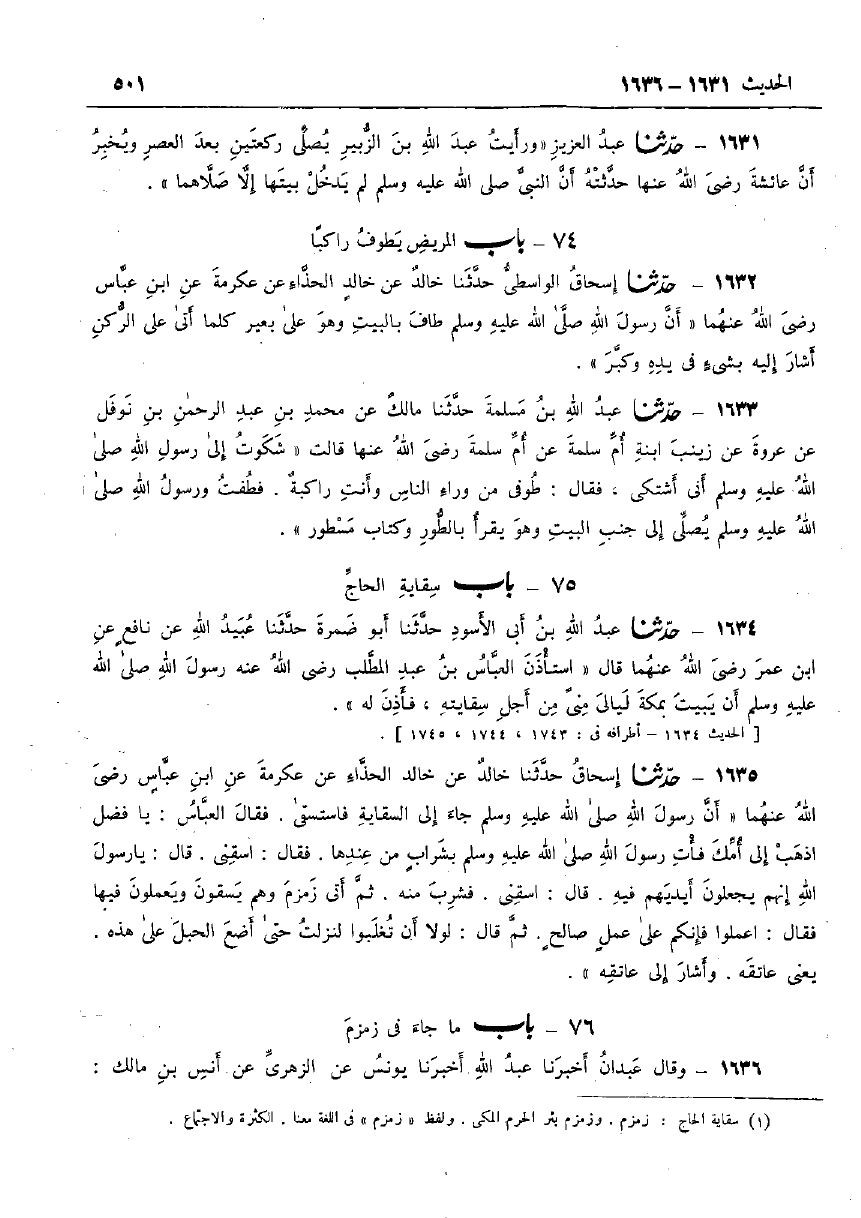 الحديث ١٦٣١ – ١٦٣٦ ٥٠١
١٦٣١ – حدّثنا عبدُ العزيزِ «ورأيتُ عبدَ اللهِ بنَ الزُّبيرِ يُصلِّى ركعتَينِ بعدَ العصرِ ويُخبِرُ
أنَّ عائشةَ رضىَ اللهُ عنها حدَّثتْهُ أنَّ النبىَّ صلى الله عليه وسلم لم يَدخُلْ بيتَها إلَّا صَلَّاهما» .
٧٤ – باب المريضِ يَطوفُ راكبًا
١٦٣٢ – حدّثنا إسحاقُ الواسطىُّ حدَّثَنا خالدٌ عن خالدٍ الحذَّاءِ عن عكرمةَ عنِ ابنِ عبَّاس
رضىَ اللهُ عنهُما « أنَّ رسولَ اللهِ صلَّى الله عليه وسلم طافَ بالبيتِ وهوَ علىٰ بعير كلما أتىٰ على الرُّكنِ
أشارَ إليه بشىءٍ فى يدِهِ وكبَّرَ » .
١٦٣٣ – حدّثنا عبدُ اللهِ بنُ مَسلمةَ حدَّثَنا مالكٌ عن محمدِ بنِ عبدِ الرحمٰنِ بنِ نَوفَل
عن عروةَ عن زينبَ ابنةِ أُمِّ سلمةَ عن أُمِّ سلمةَ رضىَ اللهُ عنها قالت « شَكَوتُ إلىٰ رسولِ اللهِ صلىٰ
اللهُ عليهِ وسلم أنى أَشتكى ، فقال : طُوفى من وراءِ الناسِ وأنتِ راكبةٌ . فطُفتُ ورسولُ اللهِ صلىٰ
اللهُ عليهِ وسلم يُصلِّى إلى جنبِ البيتِ وهوَ يقرأُ بالطُّورِ وكتاب مَسْطور » .
٧٥ – باب سِقايةِ الحاجِّ
١٦٣٤ – حدّثنا عبدُ اللهِ بنُ أبى الأسودِ حدَّثَنا أبو ضَمرةَ حدَّثَنا عُبَيدُ اللهِ عن نافعٍ عنِ
ابن عمرَ رضىَ اللهُ عنهُما قال « استأْذَنَ العبَّاسُ بنُ عبدِ المطَّلب رضى اللهُ عنه رسولَ اللهِ صلىٰ الله
عليهِ وسلم أن يَبيتَ بمكةَ لَيالىَ مِنىً مِن أجلِ سِقايتهِ ، فأَذِنَ له » .
[ الحديث ١٦٣٤ – أطرافه فى : ١٧٤٣ ، ١٧٤٤ ، ١٧٤٥ ] .
١٦٣٥ – حدّثنا إسحاقُ حدَّثَنا خالدٌ عن خالد الحذَّاءِ عن عكرمةَ عنِ ابنِ عبَّاسٍ رضىَ
اللهُ عنهُما « أنَّ رسولَ اللهِ صلىٰ الله عليهِ وسلم جاءَ إلى السقايةِ فاستسقىٰ . فقالَ العبَّاسُ : يا فضل
اذهَبْ إلى أُمِّكَ فأْتِ رسولَ اللهِ صلىٰ الله عليهِ وسلم بشَرابٍ من عِندِها . فقال : اسقِنى . قال : يارسولَ
اللهِ إنهم يجعلونَ أيديَهم فيهِ . قال : اسقِنى . فشرِبَ منه . ثمَّ أتى زَمزمَ وهم يَسقونَ ويَعملونَ فيها
فقال : اعملوا فإنكم علىٰ عملٍ صالحٍ . ثمَّ قال : لولا أن تُغلَبوا لنزلتُ حتىٰ أضعَ الحبلَ علىٰ هذه .
يعنى عاتقَه . وأشارَ إلى عاتقِه » .
٧٦ – باب ما جاءَ فى زمزمَ
١٦٣٦ – وقال عَبدانُ أخبرَنا عبدُ اللهِ أخبرَنا يونسُ عن الزهرىِّ عن أنَسِ بنِ مالك :
(١) سقاية الحاج : زمزم . وزمزم بئر الحرم المكى . ولفظ « زمزم » فى اللغة معنا . الكثرة والاجتماع .